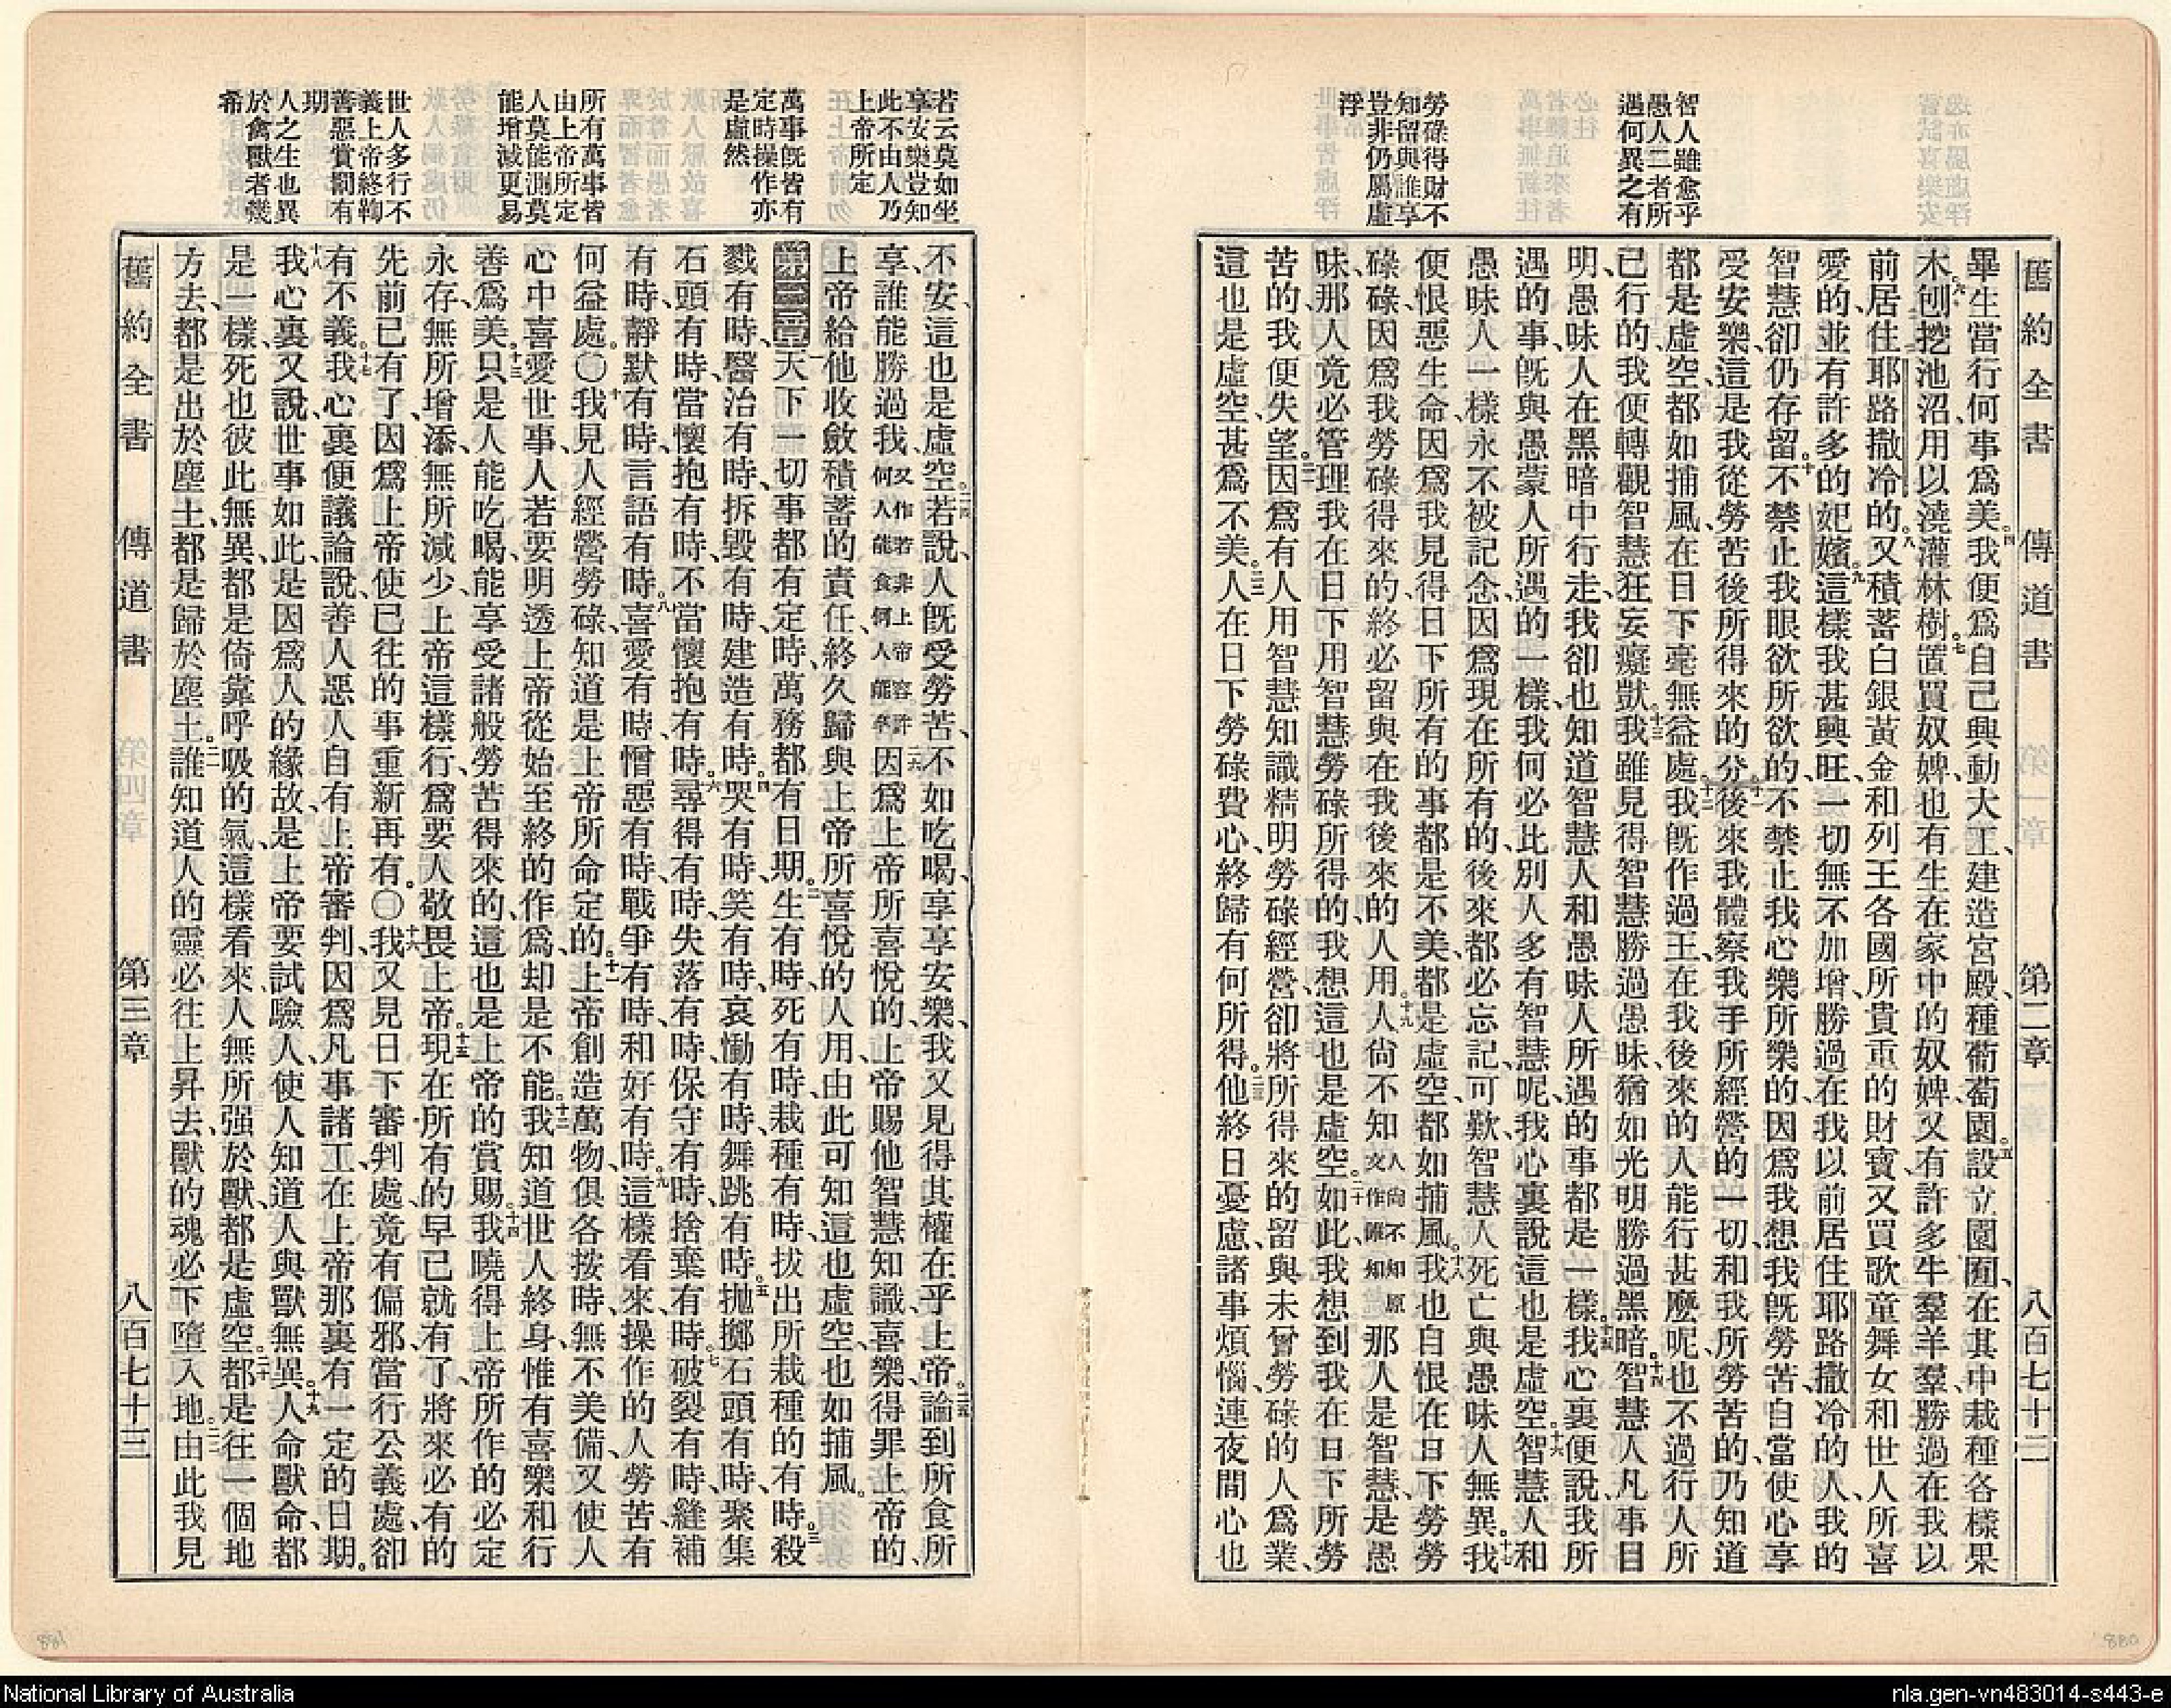 舊約全書 傳道書 第二章 八百七十二
智人雖愈乎
愚人二者所
遇何異之有
勞碌得財不
知留與誰享
豈非仍屬虛
浮
畢生當行何事爲美。四我便爲自己興動大工、建造宮殿、種葡萄園。五設立園囿、在其中栽種各樣果
木。六刨挖池沼、用以澆灌林樹。七置買奴婢、也有生在家中的奴婢、又有許多牛羣羊羣、勝過在我以
前居住耶路撒冷的。八又積蓄白銀黃金和列王各國所貴重的財寶、又買歌童舞女和世人所喜
愛的、並有許多的妃嬪。九這樣我甚興旺、一切無不加增、勝過在我以前居住耶路撒冷的人、我的
智慧卻仍存留。十不禁止我眼欲所欲的、不禁止我心樂所樂的、因爲我想、我旣勞苦、自當使心享
受安樂、這是我從勞苦後所得來的分。十一後來我體察我手所經營的一切、和我所勞苦的、乃知道
都是虛空、都如捕風、在日下毫無益處。十二我旣作過王、在我後來的人能行甚麼呢、也不過行人所
已行的、我便轉觀智慧狂妄癡獃。十三我雖見得智慧勝過愚昧、猶如光明勝過黑暗。十四智慧人凡事目
明、愚昧人在黑暗中行走、我卻也知道智慧人和愚昧人所遇的事都是一樣。十五我心裏便說、我所
遇的事、旣與愚蒙人所遇的一樣、我何必此別人多有智慧呢、我心裏說這也是虛空。十六智慧人和
愚昧人一樣永不被記念、因爲現在所有的、後來都必忘記、可歎智慧人死亡與愚昧人無異。十七我
便恨惡生命、因爲我見得日下所有的事都是不美、都是虛空、都如捕風。十八我也自恨在日下勞勞
碌碌、因爲我勞碌得來的、終必留與在我後來的人用。十九人尙不知人尙不知原文作誰知那人是智慧、是愚
昧、那人竟必管理我在日下用智慧勞碌所得的、我想這也是虛空。二十如此、我想到我在日下所勞
苦的、我便失望。二一因爲有人用智慧知識精明勞碌經營、卻將所得來的留與未曾勞碌的人爲業、
這也是虛空、甚爲不美。二二人在日下勞碌費心、終歸有何所得。二三他終日憂慮、諸事煩惱、連夜間心也
若云莫如坐
享安樂豈知
此不由人乃
上帝所定
萬事旣皆有
定時操作亦
是虛然
所有萬事皆
由上帝所定
人莫能測莫
能增減更易
世人多行不
義上帝終鞫
善惡賞罰有
期
人之生也異
於禽獸者幾
希
不安、這也是虛空。二四若說、人旣受勞苦、不如吃喝、享享安樂、我又見得其權在乎上帝。二五論到所食所
享、誰能勝過我又作若非上帝容許何人能食何人能享二六因爲上帝所喜悅的、上帝賜他智慧知識喜樂、得罪上帝的、
上帝給他收斂積蓄的責任、終久歸與上帝所喜悅的人用、由此可知這也虛空、也如捕風。
第三章一天下一切事都有定時、萬務都有日期。二生有時、死有時、栽種有時、拔出所栽種的有時。三殺
戮有時、醫治有時、拆毀有時、建造有時。四哭有時、笑有時、哀慟有時、舞跳有時。五拋擲石頭有時、聚集
石頭有時、當懷抱有時、不當懷抱有時。六尋得有時、失落有時、保守有時、捨棄有時。七破裂有時、縫補
有時、靜默有時、言語有時。八喜愛有時、憎惡有時、戰爭有時、和好有時。九這樣看來、操作的人勞苦、有
何益處。〇十我見人經營勞碌、知道是上帝所命定的。十一上帝創造萬物、俱各按時、無不美備、又使人
心中喜愛世事、人若要明透上帝從始至終的作爲、却是不能。十二我知道世人終身、惟有喜樂和行
善爲美。十三只是人能吃喝、能享受諸般勞苦得來的、這也是上帝的賞賜。十四我曉得上帝所作的必定
永存、無所增添、無所減少、上帝這樣行、爲要人敬畏上帝。十五現在所有的早已就有了、將來必有的
先前已有了、因爲上帝使已往的事重新再有。〇十六我又見日下審判處、竟有偏邪、當行公義處、卻
有不義。十七我心裏便議論說、善人惡人自有上帝審判、因爲凡事諸工、在上帝那裏有一定的日期。
十八我心裏又說、世事如此、是因爲人的緣故、是上帝要試驗人、使人知道人與獸無異。十九人命獸命、都
是一樣、死也彼此無異、都是倚靠呼吸的氣、這樣看來、人無所强於獸、都是虛空。二十都是往一個地
方去、都是出於塵土、都是歸於塵土。二一誰知道人的靈必往上昇去、獸的魂必下墮入地。二二由此我見
舊約全書 傳道書 第三章 八百七十三
880
881
National Library of Australia
nla.gen-vn483014-s443-e